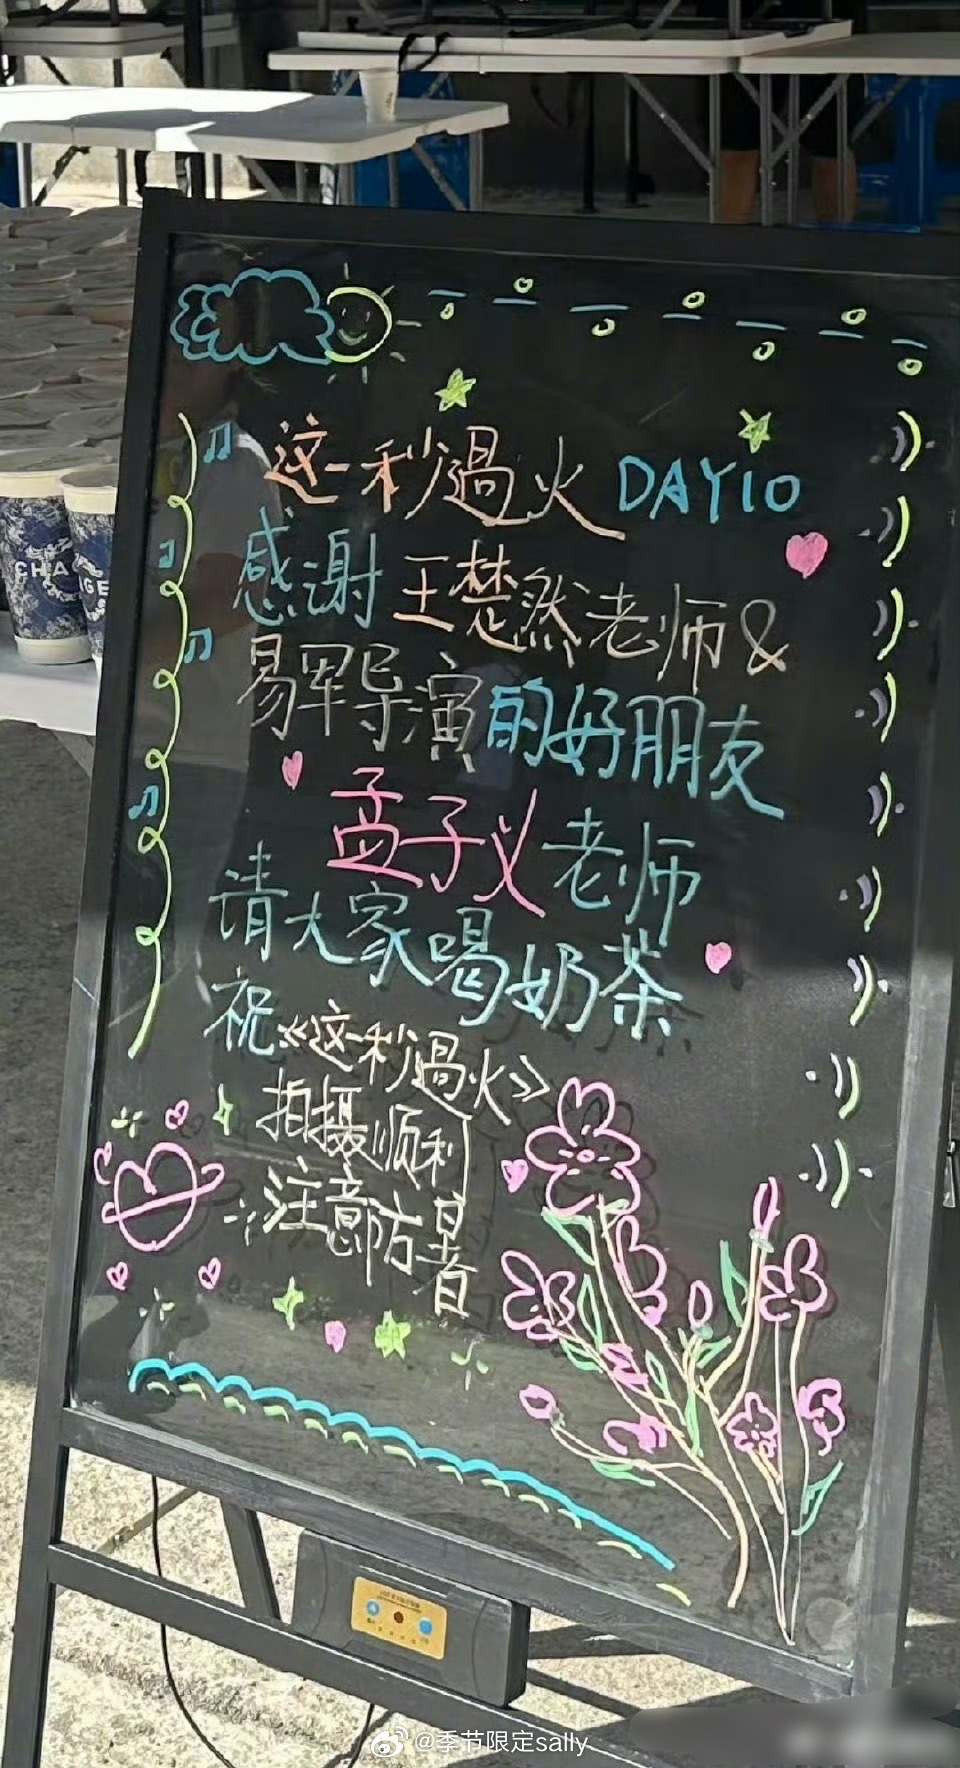 这一秒過火 DAY10
感谢王楚然老师&
易军导演的好朋友
孟子义老师
请大家喝奶茶
祝《这一秒過火》
拍摄顺利
注意防暑
CHA
GE
@季节限定sally